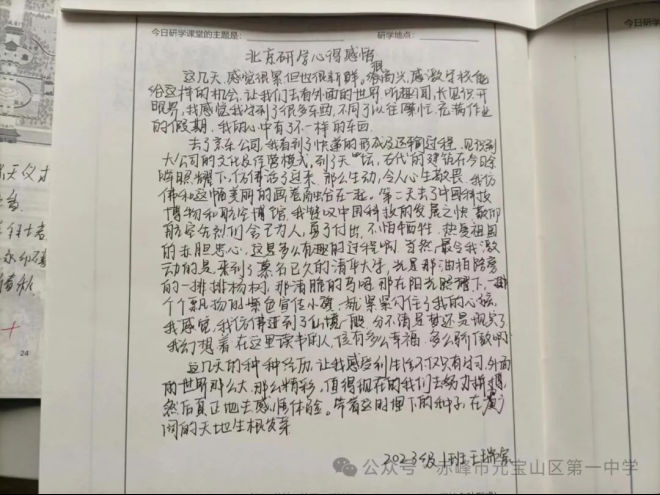 今日研学课堂的主题是:
研学地点:
今日研学
北京研学心得感悟
这几天,感觉很累但也很新鲜。很高兴,感激学校能
给这样的机会,让我们去看外面的世界,听趣闻,长见识,开
眼界,我感觉我学到了很多东西,不同于以往慵忙,充满作业
的假期,我的心中有了不一样的东西。
去了京东公司,我看到了快递的形成及运输过程,见识到
大公司的文化及经营模式,到了天坛,古代的建筑在今日
阳照耀下,仿佛活了过来,那么生动,令人心生敬畏,我仿
佛和这幅美丽的画卷融合在一起。第二天去了中国科技
博物和航空博馆,我赞叹中国科技的发展之快,敬仰
航空
为人,
付出,不怕牺牲,热爱祖国
的赤胆忠心,这是多么有趣的过程啊。当然,最令我激
动的是,来到了慕名已久的清华大学,光是那油柏路旁
的一排排杨树,那清脆的鸟鸣,那在阳光照耀下,一排
个个飘扬的紫色宣传小旗,就紧紧勾住了我的心弦
我感觉,我仿佛进到了仙境一般,分不清是梦还是现实了
我幻想着,在这里读书的人,该有多么幸福,多么骄傲啊
这几天的种种经历,让我感受到生活不仅只有学习,外面
的世界那么大,那么精彩,值得现在的我们去努力拼搏,
然后真正地去感悟体验。带着这时埋下的种子,在广
阔的天地生根发芽
2023级1班王瑞
24
公众号 · 赤峰市元宝山区第一中学